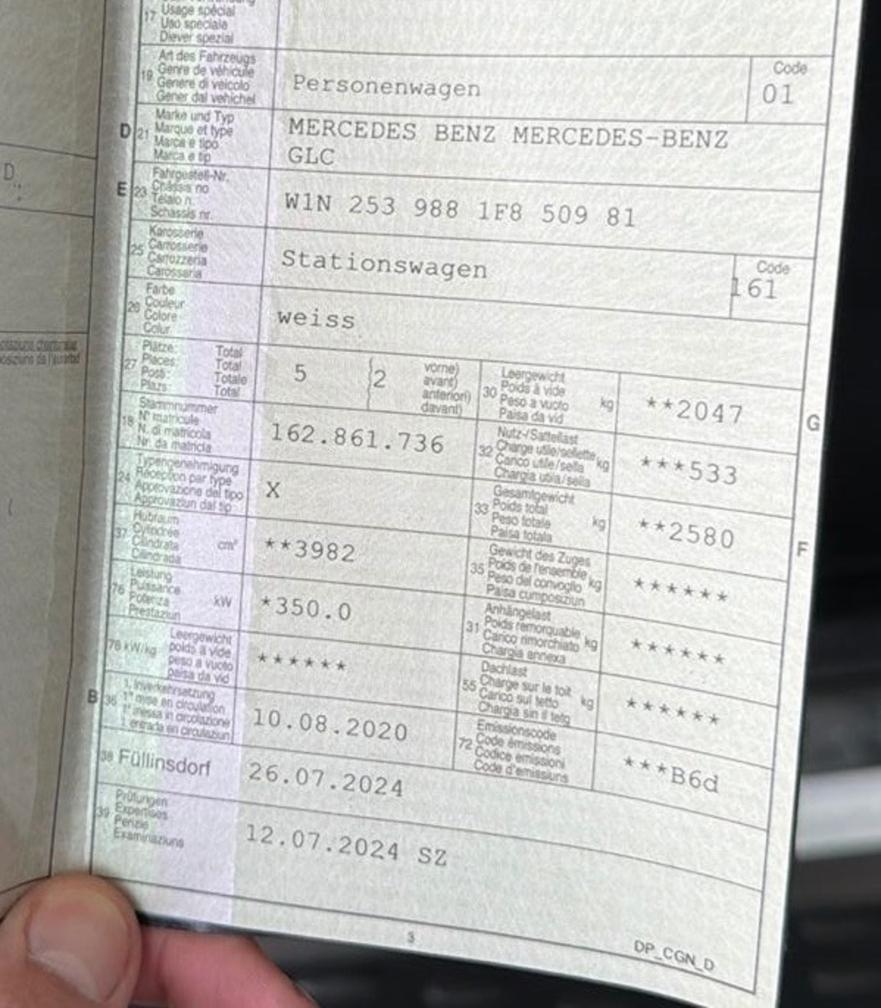 17 Usage spécial
Uso speciale
Diever spezial
Art des Fahrzeugs
19 Genre de véhicule
Genere di veicolo
Gener dal vehichel
Personenwagen
Code
01
Marke und Typ
D 21 Marque et type
Marca e tipo
Marca e tip
MERCEDES BENZ MERCEDES-BENZ
GLC
Fahrgestell-Nr.
E 23 Châssis no
Telaio n.
Schassis nr.
W1N 253 988 1F8 509 81
Karosserie
25 Carrosserie
Carrozzeria
Carossaria
Stationswagen
Code
161
Farbe
26 Couleur
Colore
Colur
weiss
Plätze: Total
27 Places: Total
Posti: Totale
Plazs: Total
5
2
vorne)
avant)
anteriori)
davant)
Leergewicht
30 Poids à vide kg
Peso a vuoto
Paisa da vid
**2047
G
Stammnummer
18 N° matricule
N. di matricola
Nr. da matricla
162.861.736
Nutz-/Sattellast
32 Charge utile/sellette kg
Carico utile/sella
Chargia utila/sella
***533
Typengenehmigung
24 Réception par type
Approvazione del tipo
Approvaziun dal tip
X
Gesamtgewicht
33 Poids total kg
Peso totale
Paisa totala
**2580
F
Hubraum
37 Cylindrée cm³
Cilindrata
Cilindrada
**3982
Gewicht des Zuges
35 Poids de l'ensemble kg
Peso del convoglio
Paisa cumposiziun
******
Leistung
76 Puissance kW
Potenza
Prestaziun
*350.0
Anhängelast
31 Poids remorquable kg
Carico rimorchiato
Chargia annexa
******
Leergewicht
78 kW/kg poids à vide
peso a vuoto
paisa da vid
******
Dachlast
55 Charge sur le toit kg
Carico sul tetto
Chargia sin il tetg
******
1. Inverkehrsetzung
B 36 1re mise en circulation
1a messa in circolazione
1. entrada en circulaziun
10.08.2020
Emissionscode
72 Code émissions
Codice emissioni
Code d'emissiuns
***B6d
38 Füllinsdorf
26.07.2024
Prüfungen
39 Expertises
Perizie
Examinaziuns
12.07.2024 SZ
3
DP_CGN_D